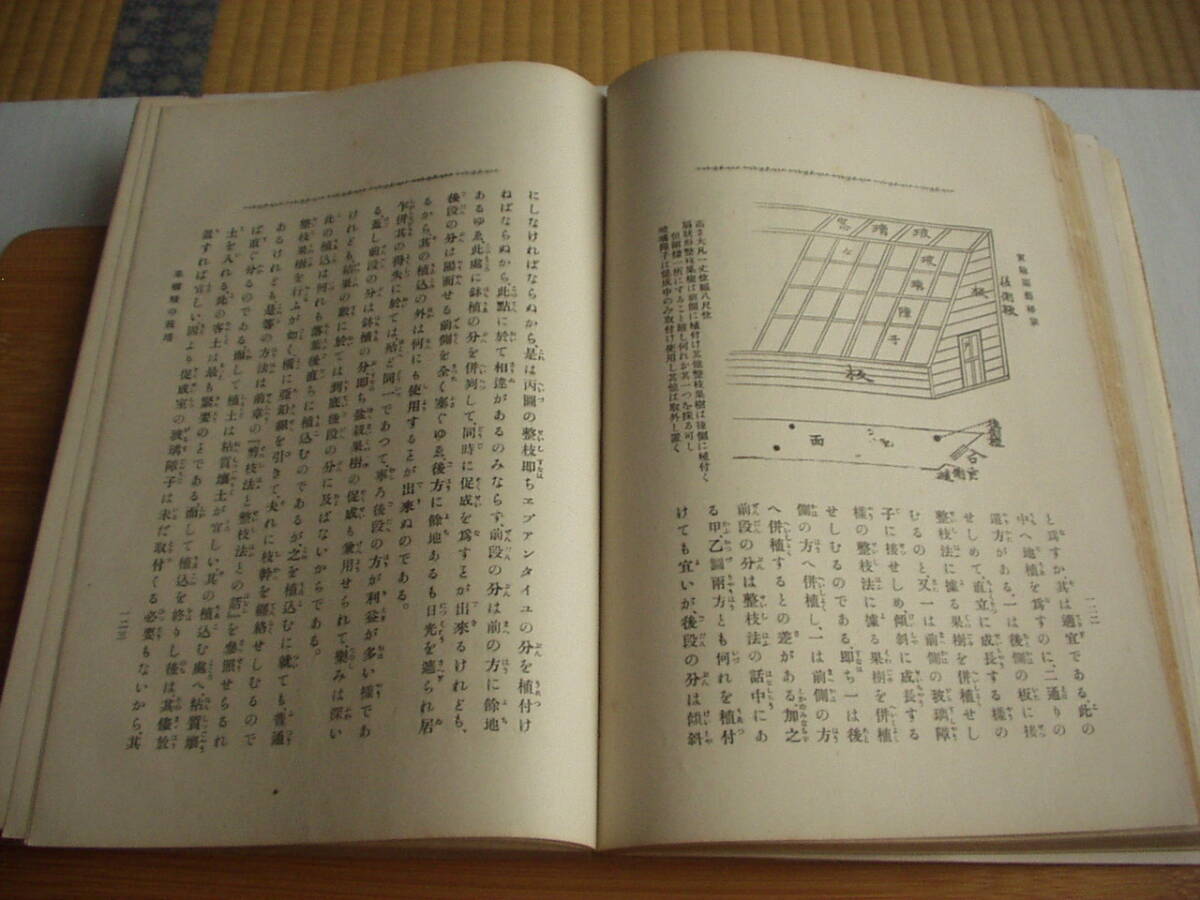 一二二
高さ大凡一丈位幅八尺位
扇狀形整枝果樹は前側に植付け其他整枝果樹は後側に植付く
但兩樣一所にすること難し何れか其一つを採る可し
玻璃障子は促成中のみ取付け使用し其他は取外し置く
玻璃窓
玻璃障子
板
板
後衝板
面
と爲すか其は適宜である此の
中へ地植を爲すのに、二通りの
還方がある。一は後側の板に接
せしめて、直立に成長する樣の
整枝法に據る果樹を併植せし
むるのと、又一は前側の玻璃障
子に接せしめ、傾斜に成長する
樣の整枝法に據る果樹を併植
せしむるのである、即ち一は後
側の方へ併植し、一は前側の方
へ併植するとの差がある、加之
前段の分は整枝法の話中にあ
る甲、乙圖兩方とも何れを植付
けても宜いが、後段の分は傾斜
にしなければならぬから、是は丙圖の整枝即ちヱプアンタイユの分を植付け
ねばならぬから此點に於て相違があるのみならず、前段の分は前の方に餘地
あるゆゑ、此處に鉢植の分を併列して、同時に促成を爲すとが出來るけれども、
後段の分は陽面せる前側を全く塞ぐゆゑ、後方に餘地あるも日光を遮られ居
るから、其の植込の外は何にも使用することが出來ぬのである。
乍併其の得失に於ては、殆ど同一であつて、寧ろ後段の方が利益が多い樣であ
る、蓋し前段の分は鉢植の分、即ち盆栽果樹の促成も兼用せられて、樂みは深い
けれども、結果の數に於ては到底後段の分に及ばないからである。
此の植込は何れも落葉後直ちに植込むのであるが、之を植込むに就ても、普通
整枝果樹を行ふが如く、横に亞鉛線を引きて、夫れに枝幹を纒絡せしむるので
あるけれども、是等の方法は前章の『剪枝法と整枝法との話』を參照せらるれ
ば直ぐ分るのである、而して植土は粘質壤土が宜しい、其の植込む處へ、粘質壤
土を入れる、此の客土は最も緊要のとである、而して植込を終りし後は、其儘放
置すれば宜しい、固より促成室の玻璃障子は未だ取付くる必要もないから、其
一二三